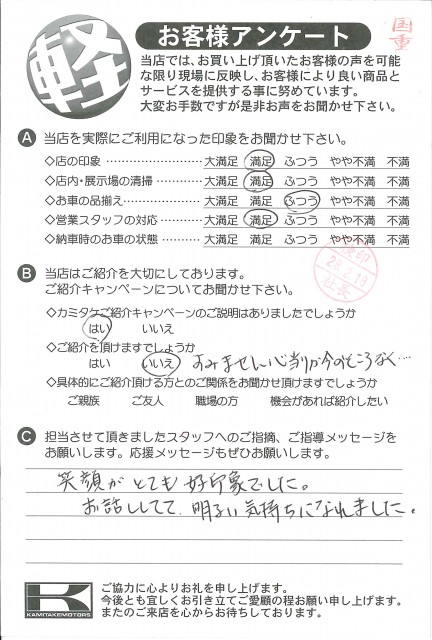 軽
お客様アンケート
国重
当店では、お買い上げ頂いたお客様の声を可能
な限り現場に反映し、お客様により良い商品と
サービスを提供する事に努めています。
大変お手数ですが是非お声をお聞かせ下さい。
A 当店を実際にご利用になった印象をお聞かせ下さい。
◇店の印象 ………………… 大満足 満足 ふつう やや不満 不満
◇店内・展示場の清掃………… 大満足 満足 ふつう やや不満 不満
◇お車の品揃え……………… 大満足 満足 ふつう やや不満 不満
◇営業スタッフの対応………… 大満足 満足 ふつう やや不満 不満
◇納車時のお車の状態………… 大満足 満足 ふつう やや不満 不満
社長
B 当店はご紹介を大切にしております。
ご紹介キャンペーンについてお聞かせ下さい。
◇カミタケご紹介キャンペーンのご説明はありましたでしょうか
はい いいえ
◇ご紹介を頂けますでしょうか
はい いいえ すみません心当りが今のところなく…
◇具体的にご紹介頂ける方とのご関係をお聞かせ頂けますでしょうか
ご親族 ご友人 職場の方 機会があれば紹介したい
C 担当させて頂きましたスタッフへのご指摘、ご指導メッセージを
お願いします。応援メッセージもぜひお願いします。
笑顔がとても好印象でした。
お話ししてて、明るい気持ちになれました。
K
KAMITAKEMOTORS
ご協力に心よりお礼を申し上げます。
今後とも宜しくお引き立てご愛顧の程お願い申し上げます。
またのご来店を心からお待ちしております。